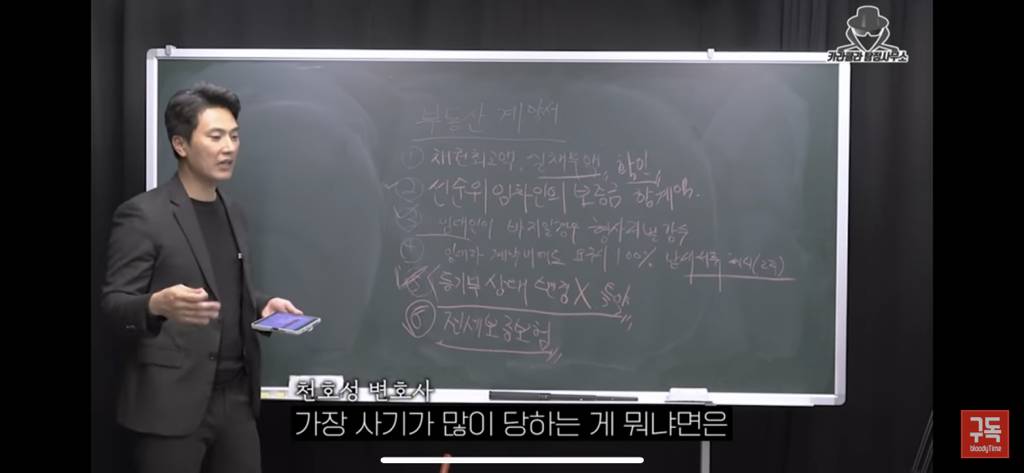 카라큘라 탐정사무소
부동산 계약서
① 채권최고액, 실채무액, 확인
② 선순위 임차인의 보증금 합계액.
③ 임대인이 바지일경우 형사처벌 감수
④ 100%
⑤ 등기부 상태 변경 X 특약
⑥ 전세보증보험
천호성 변호사
가장 사기가 많이 당하는 게 뭐냐면은
구독
bloodyTime